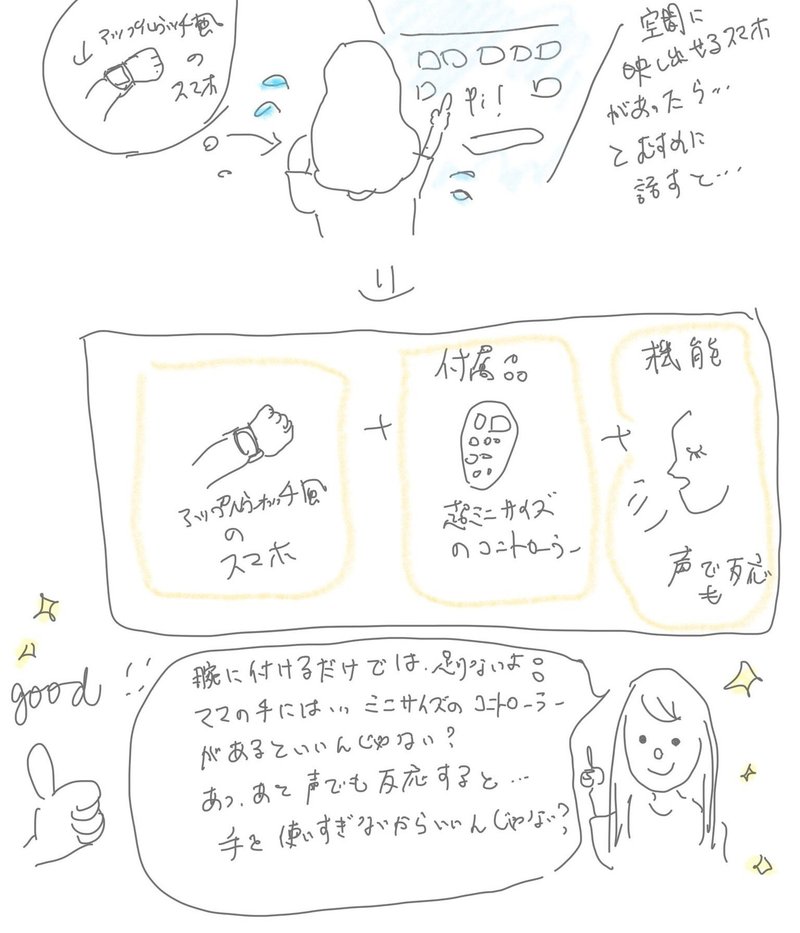 アップルウォッチ風
の
スマホ
Pi!
空間に
映し出せるスマホ
があったら…
とむすめに
話すと…
付属品
機能
アップルウォッチ風
の
スマホ
+
超ミニサイズ
のコントローラー
+
声で反応
も
good!!
腕に付けるだけでは、足りないよ。
ママの手には… ミニサイズのコントローラー
があるといいんじゃない?
あっ、あと声でも反応すると…
手を使いすぎないからいいんじゃない?